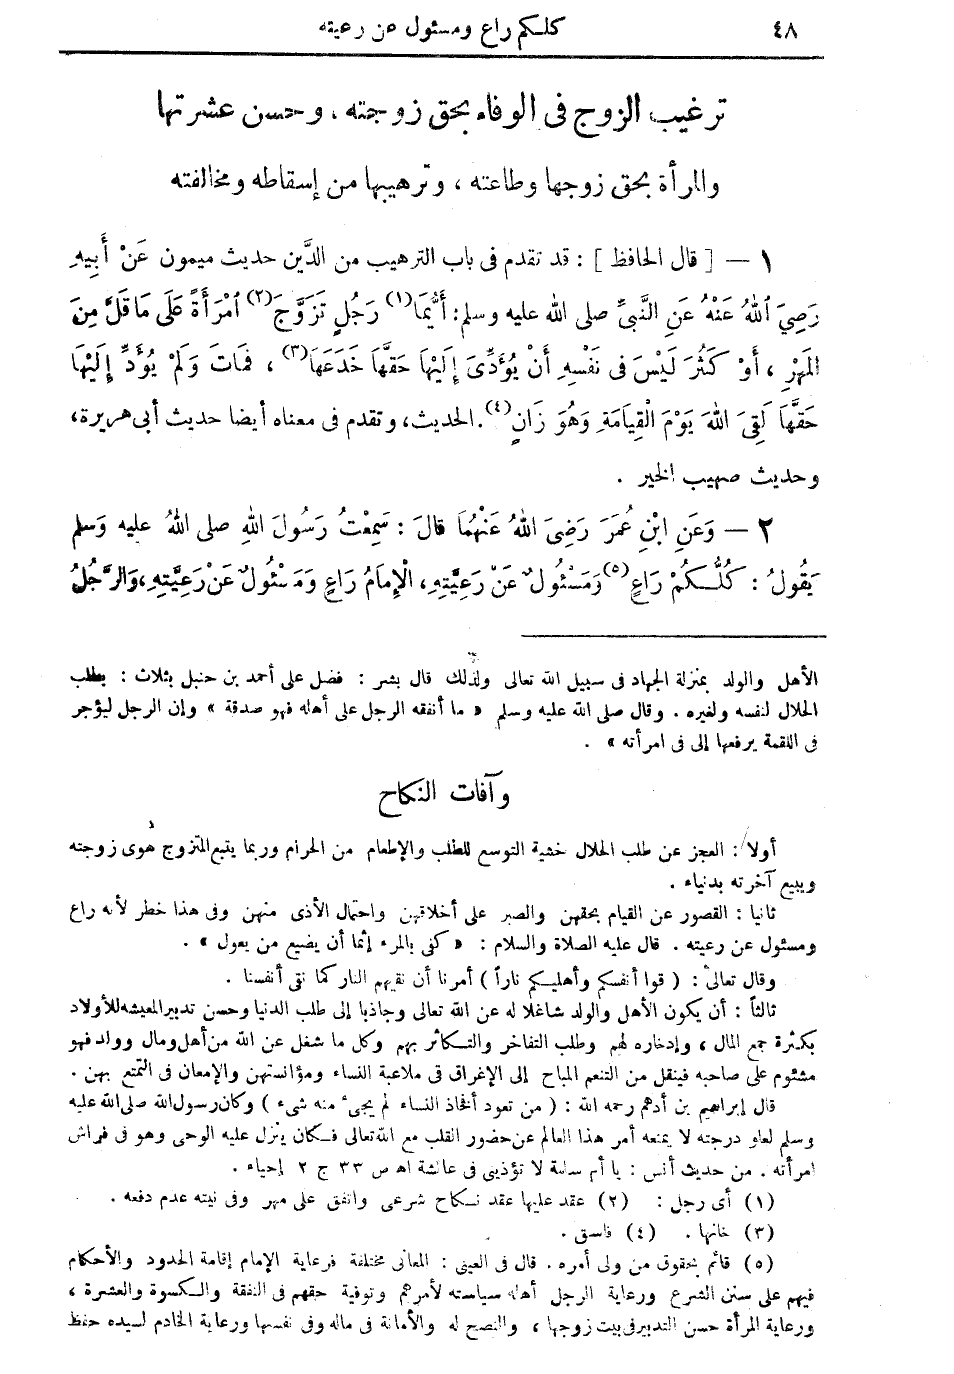 ٤٨
كلكم راع ومسئول عن رعيته
ترغيب الزوج فى الوفاء بحق زوجته ، وحسن عشرتها
والمرأة بحق زوجها وطاعته ، وترهيبها من إسقاطه ومخالفته
١ — [ قال الحافظ ] : قد تقدم فى باب الترهيب من الدَّين حديث ميمون عَنْ أَبِيهِ
رَضِىَ اللهُ عَنْهُ عَنِ النَّبىِّ صلى الله عليه وسلم: أَيُّمَا(١) رَجُلٍ تَزَوَّجَ(٢) اُمْرَأَةً عَلَى مَا قَلَّ مِنَ
المَهْرِ ، أَوْ كَثُرَ لَيْسَ فى نَفْسِهِ أَنْ يُؤَدِّىَ إِلَيْهَا حَقَّهَا خَدَعَهَا(٣) ، فَمَاتَ وَلَمْ يُؤَدِّ إِلَيْهَا
حَقَّهَا لَقِىَ اللهَ يَوْمَ الْقِيَامَةِ وَهُوَ زَانٍ(٤). الحديث، وتقدم فى معناه أيضا حديث أبى هريرة،
وحديث صهيب الخير .
٢ — وَعَنِ ابْنِ عُمَرَ رَضِىَ اللهُ عَنْهُمَا قالَ : سَمِعْتُ رَسُولَ اللهِ صلى اللهُ عليه وَسلم
يَقُولُ : كُلُّكُمْ رَاعٍ(٥) وَمَسْئُولٌ عَنْ رَعِيَّتِهِ، الْإِمَامُ رَاعٍ وَمَسْئُولٌ عَنْ رَعِيَّتِهِ، وَالرَّجُلُ
الأهل والولد بمنزلة الجهاد فى سبيل الله تعالى ولذلك قال بشر : فضل على أحمد بن حنبل بثلاث : بطلب
الحلال لنفسه ولغيره . وقال صلى الله عليه وسلم « ما أنفقه الرجل على أهله فهو صدقة » وإن الرجل ليؤجر
فى اللقمة يرفعها إلى فى امرأته » .
وآفات النكاح
أولا : العجز عن طلب الحلال خشية التوسع للطلب والإطعام من الحرام وربما يتبع المتزوج هوى زوجته
ويبيع آخرته بدنياء .
ثانيا : القصور عن القيام بحقهن والصبر على أخلاقهن واحتمال الأذى منهن وفى هذا خطر لأنه راع
ومسئول عن رعيته . قال عليه الصلاة والسلام : « كفى بالمرء إثما أن يضيع من يعول » .
وقال تعالى : ( قوا أنفسكم وأهليكم ناراً ) أمرنا أن نقيهم النار كما نقى أنفسنا .
ثالثاً : أن يكون الأهل والولد شاغلا له عن الله تعالى وجاذبا إلى طلب الدنيا وحسن تدبير المعيشه للأولاد
بكثرة جمع المال ، وإدخاره لهم وطلب التفاخر والتكاثر بهم وكل ما شغل عن الله من أهل ومال وولد فهو
مشئوم على صاحبه فينقل من التنعم المباح إلى الإغراق فى ملاعبة النساء ومؤانستهن والإمعان فى التمتع بهن .
قال إبراهيم بن أدهم رحمه الله : ( من تعود أفخاذ النساء لم يجىء منه شىء ) وكان رسول الله صلى الله عليه
وسلم لعلو درجته لا يمنعه أمر هذا العالم عن حضور القلب مع الله تعالى فكان ينزل عليه الوحى وهو فى فراش
امرأته . من حديث أنس : يا أم سلمة لا تؤذينى فى عائشة اه ص ٣٣ ج ٢ إحياء .
(١) أى رجل : (٢) عقد عليها عقد نكاح شرعى واتفق على مهر وفى نيته عدم دفعه .
(٣) خانها . (٤) فاسق .
(٥) قائم بحقوق من ولى أمره . قال فى العينى : المعانى مختلفة فرعاية الإمام إقامة الحدود والأحكام
فيهم على سنن الشرع ورعاية الرجل أهله سياسته لأمرهم وتوفية حقهم فى النفقة والكسوة والعشرة ،
ورعاية المرأة حسن التدبير فى بيت زوجها ، والنصح له والأمانة فى ماله وفى نفسها ورعاية الخادم لسيده حفظ